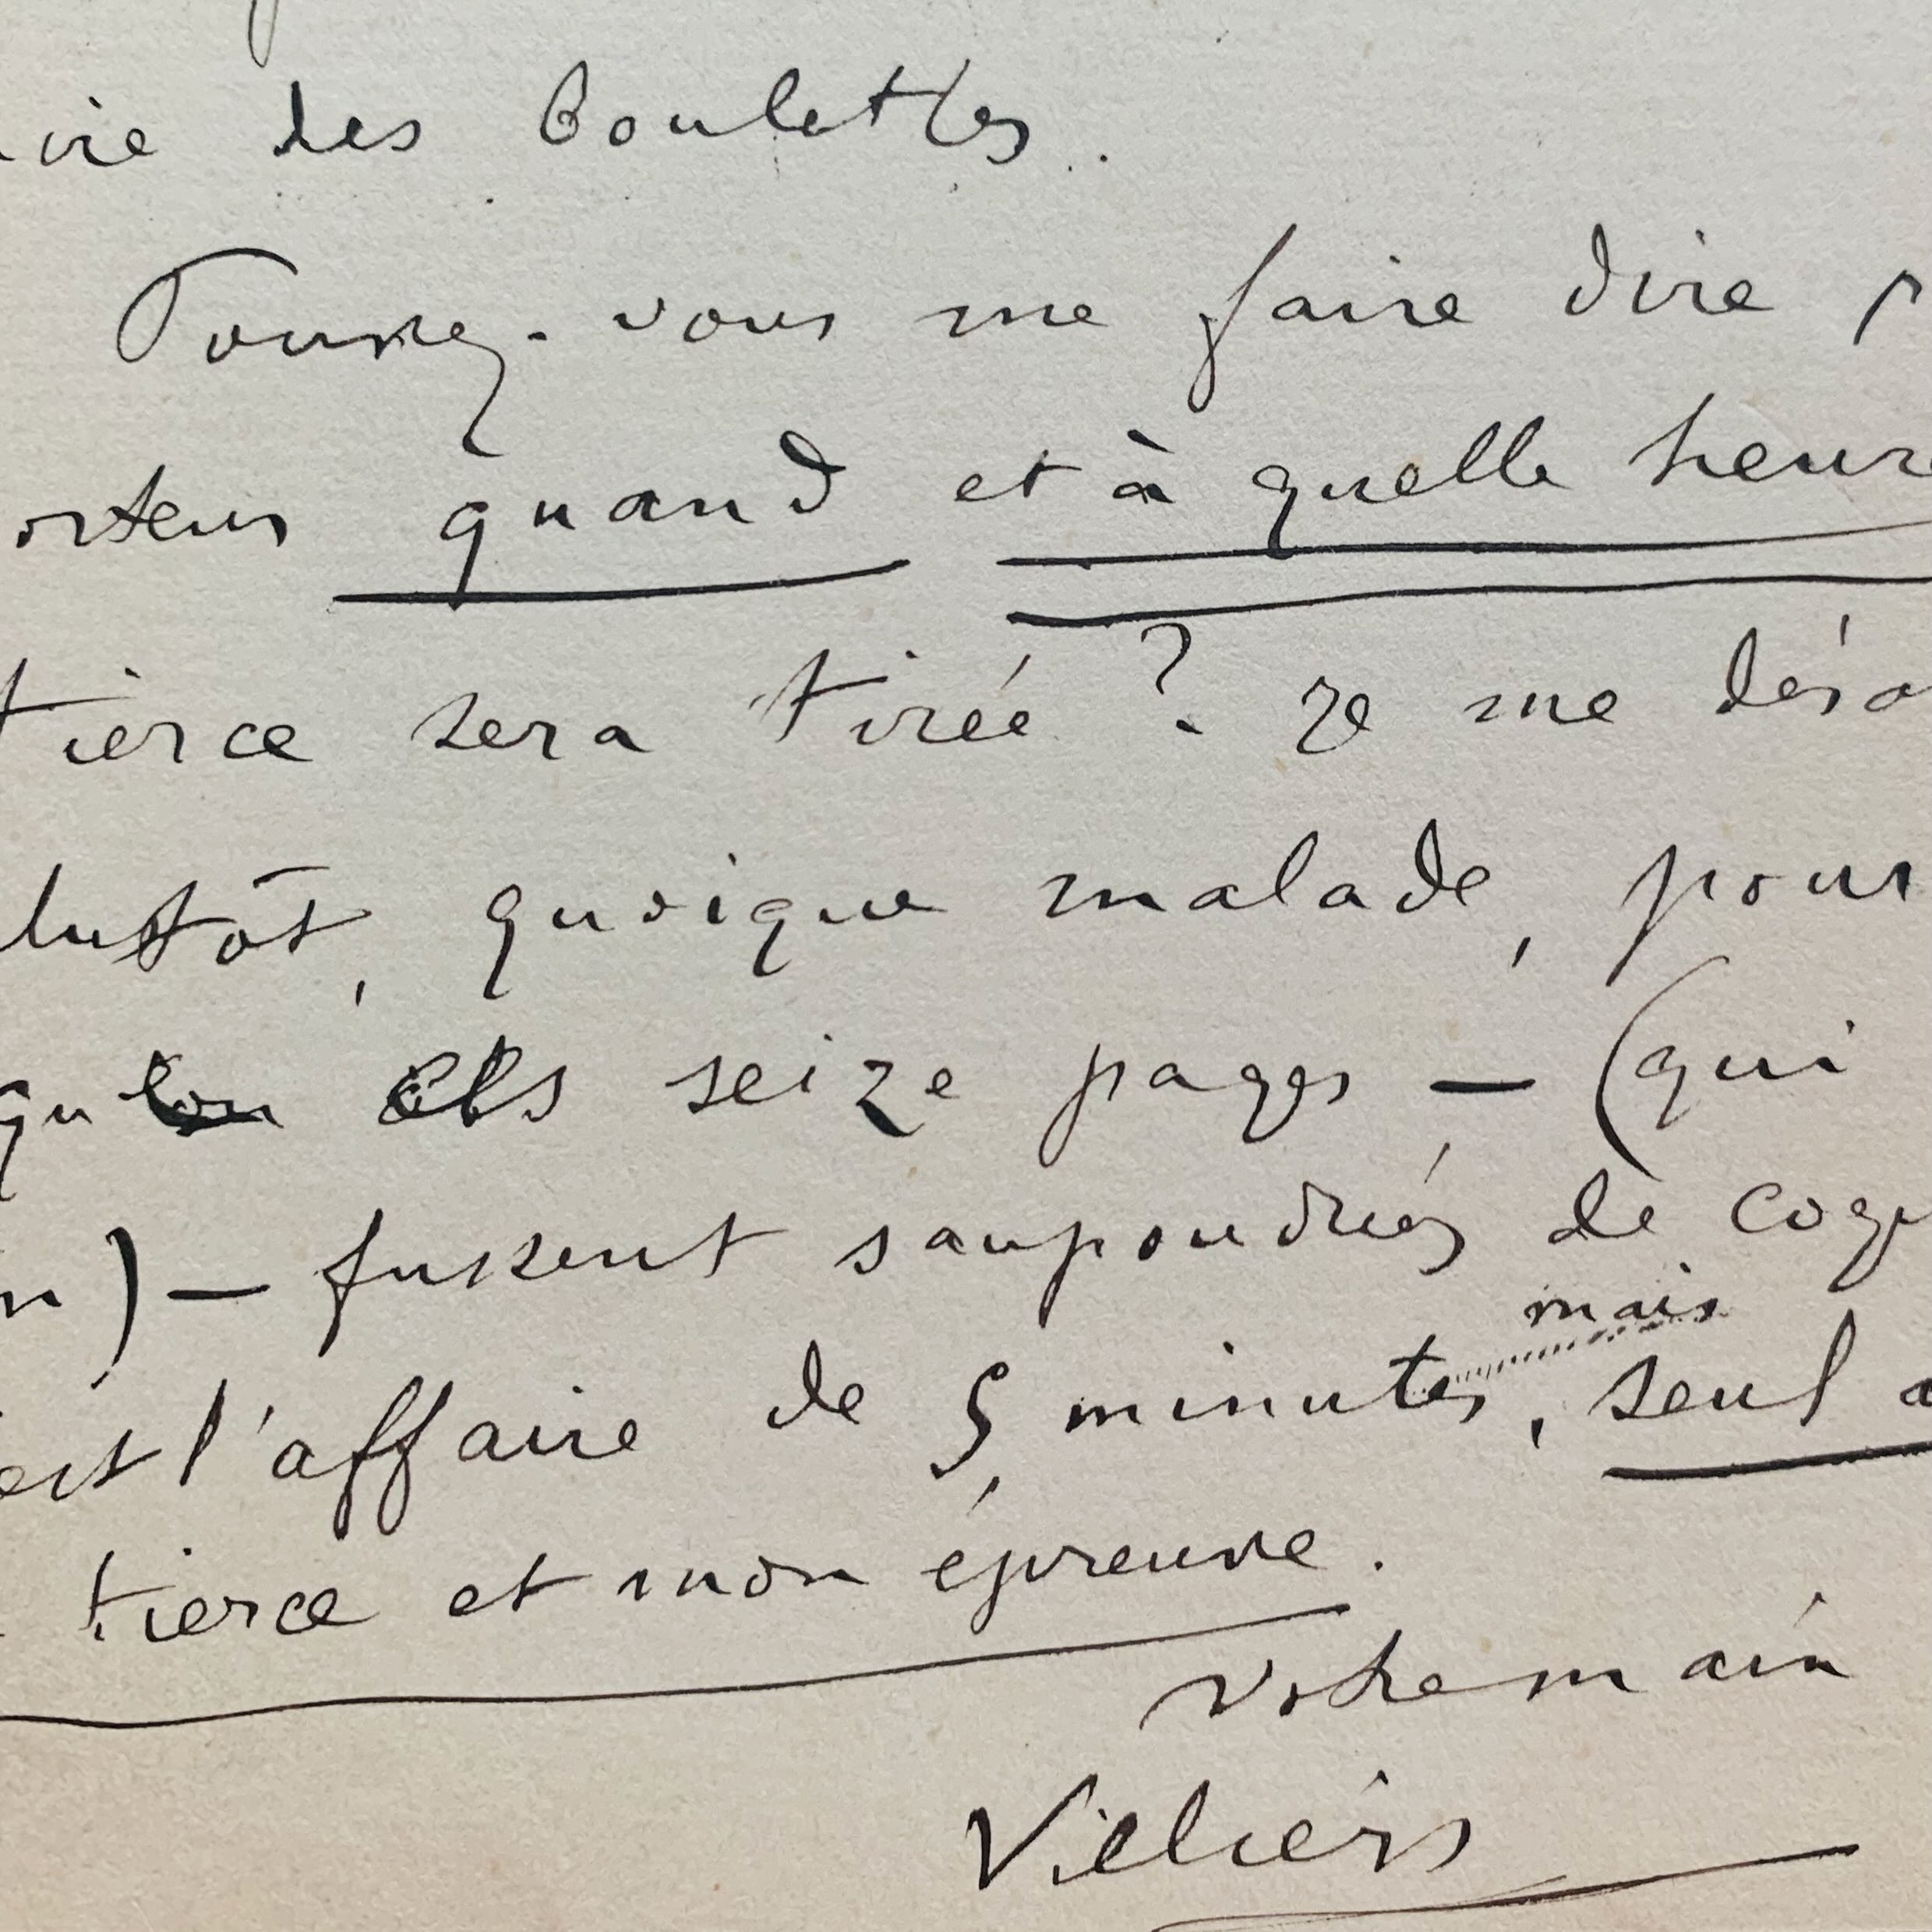 ire des boulettes.
Pouvez-vous me faire dire p
orteur quand et à quelle heure
tierce sera tirée ? Je me déso
lutôt, quoique malade, pour
seize pages — (qui
n) — fussent saupoudrés de coqu
est l'affaire de 5 minutes, mais seul a
tierce et mon épreuve.
Votre main
Villiers